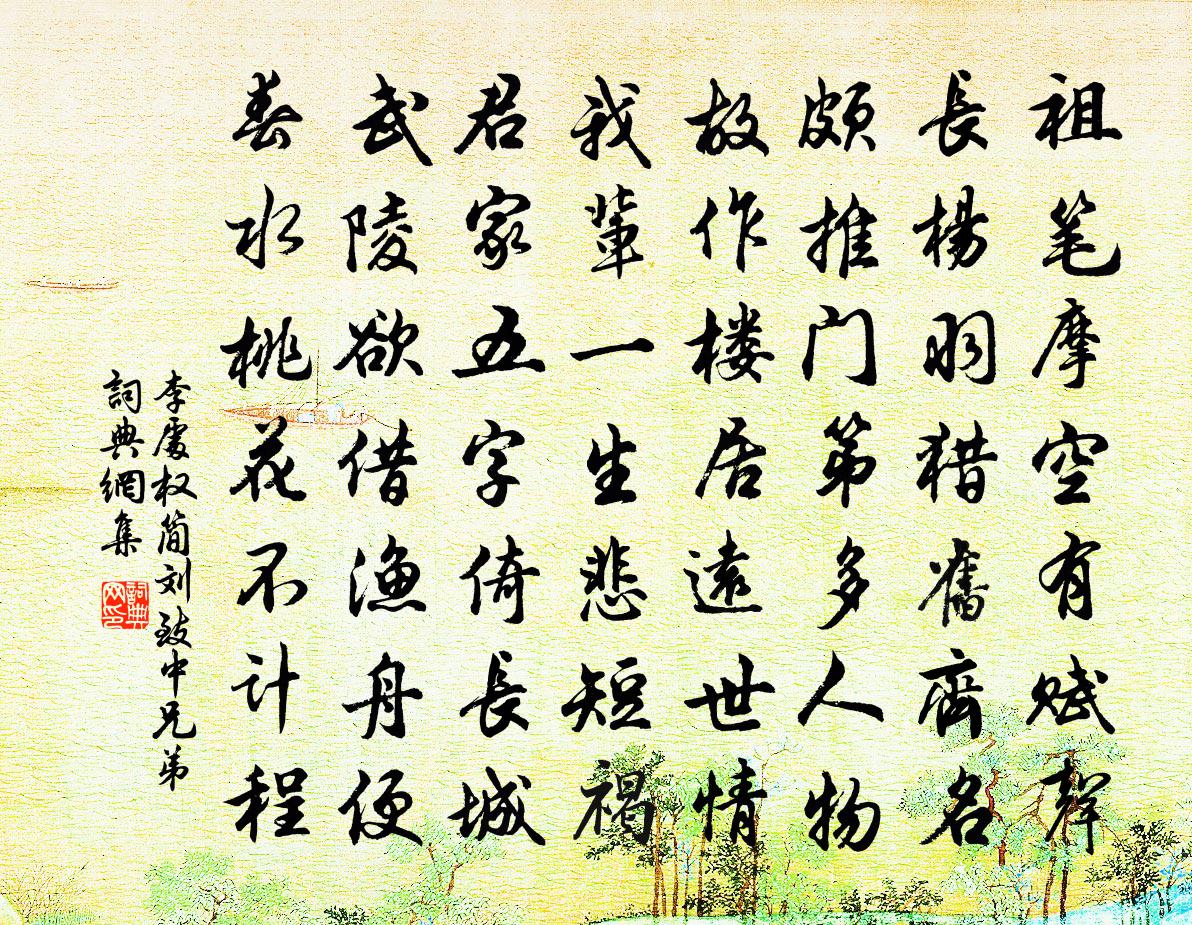 祖笔摩空有赋声
長楊羽猎舊齊名
頗推门第多人物
故作楼居遠世情
我輩一生悲短褐
君家五字倚長城
武陵欲借漁舟便
春水桃花不计程
李處权简刘致中兄弟
詞典網集